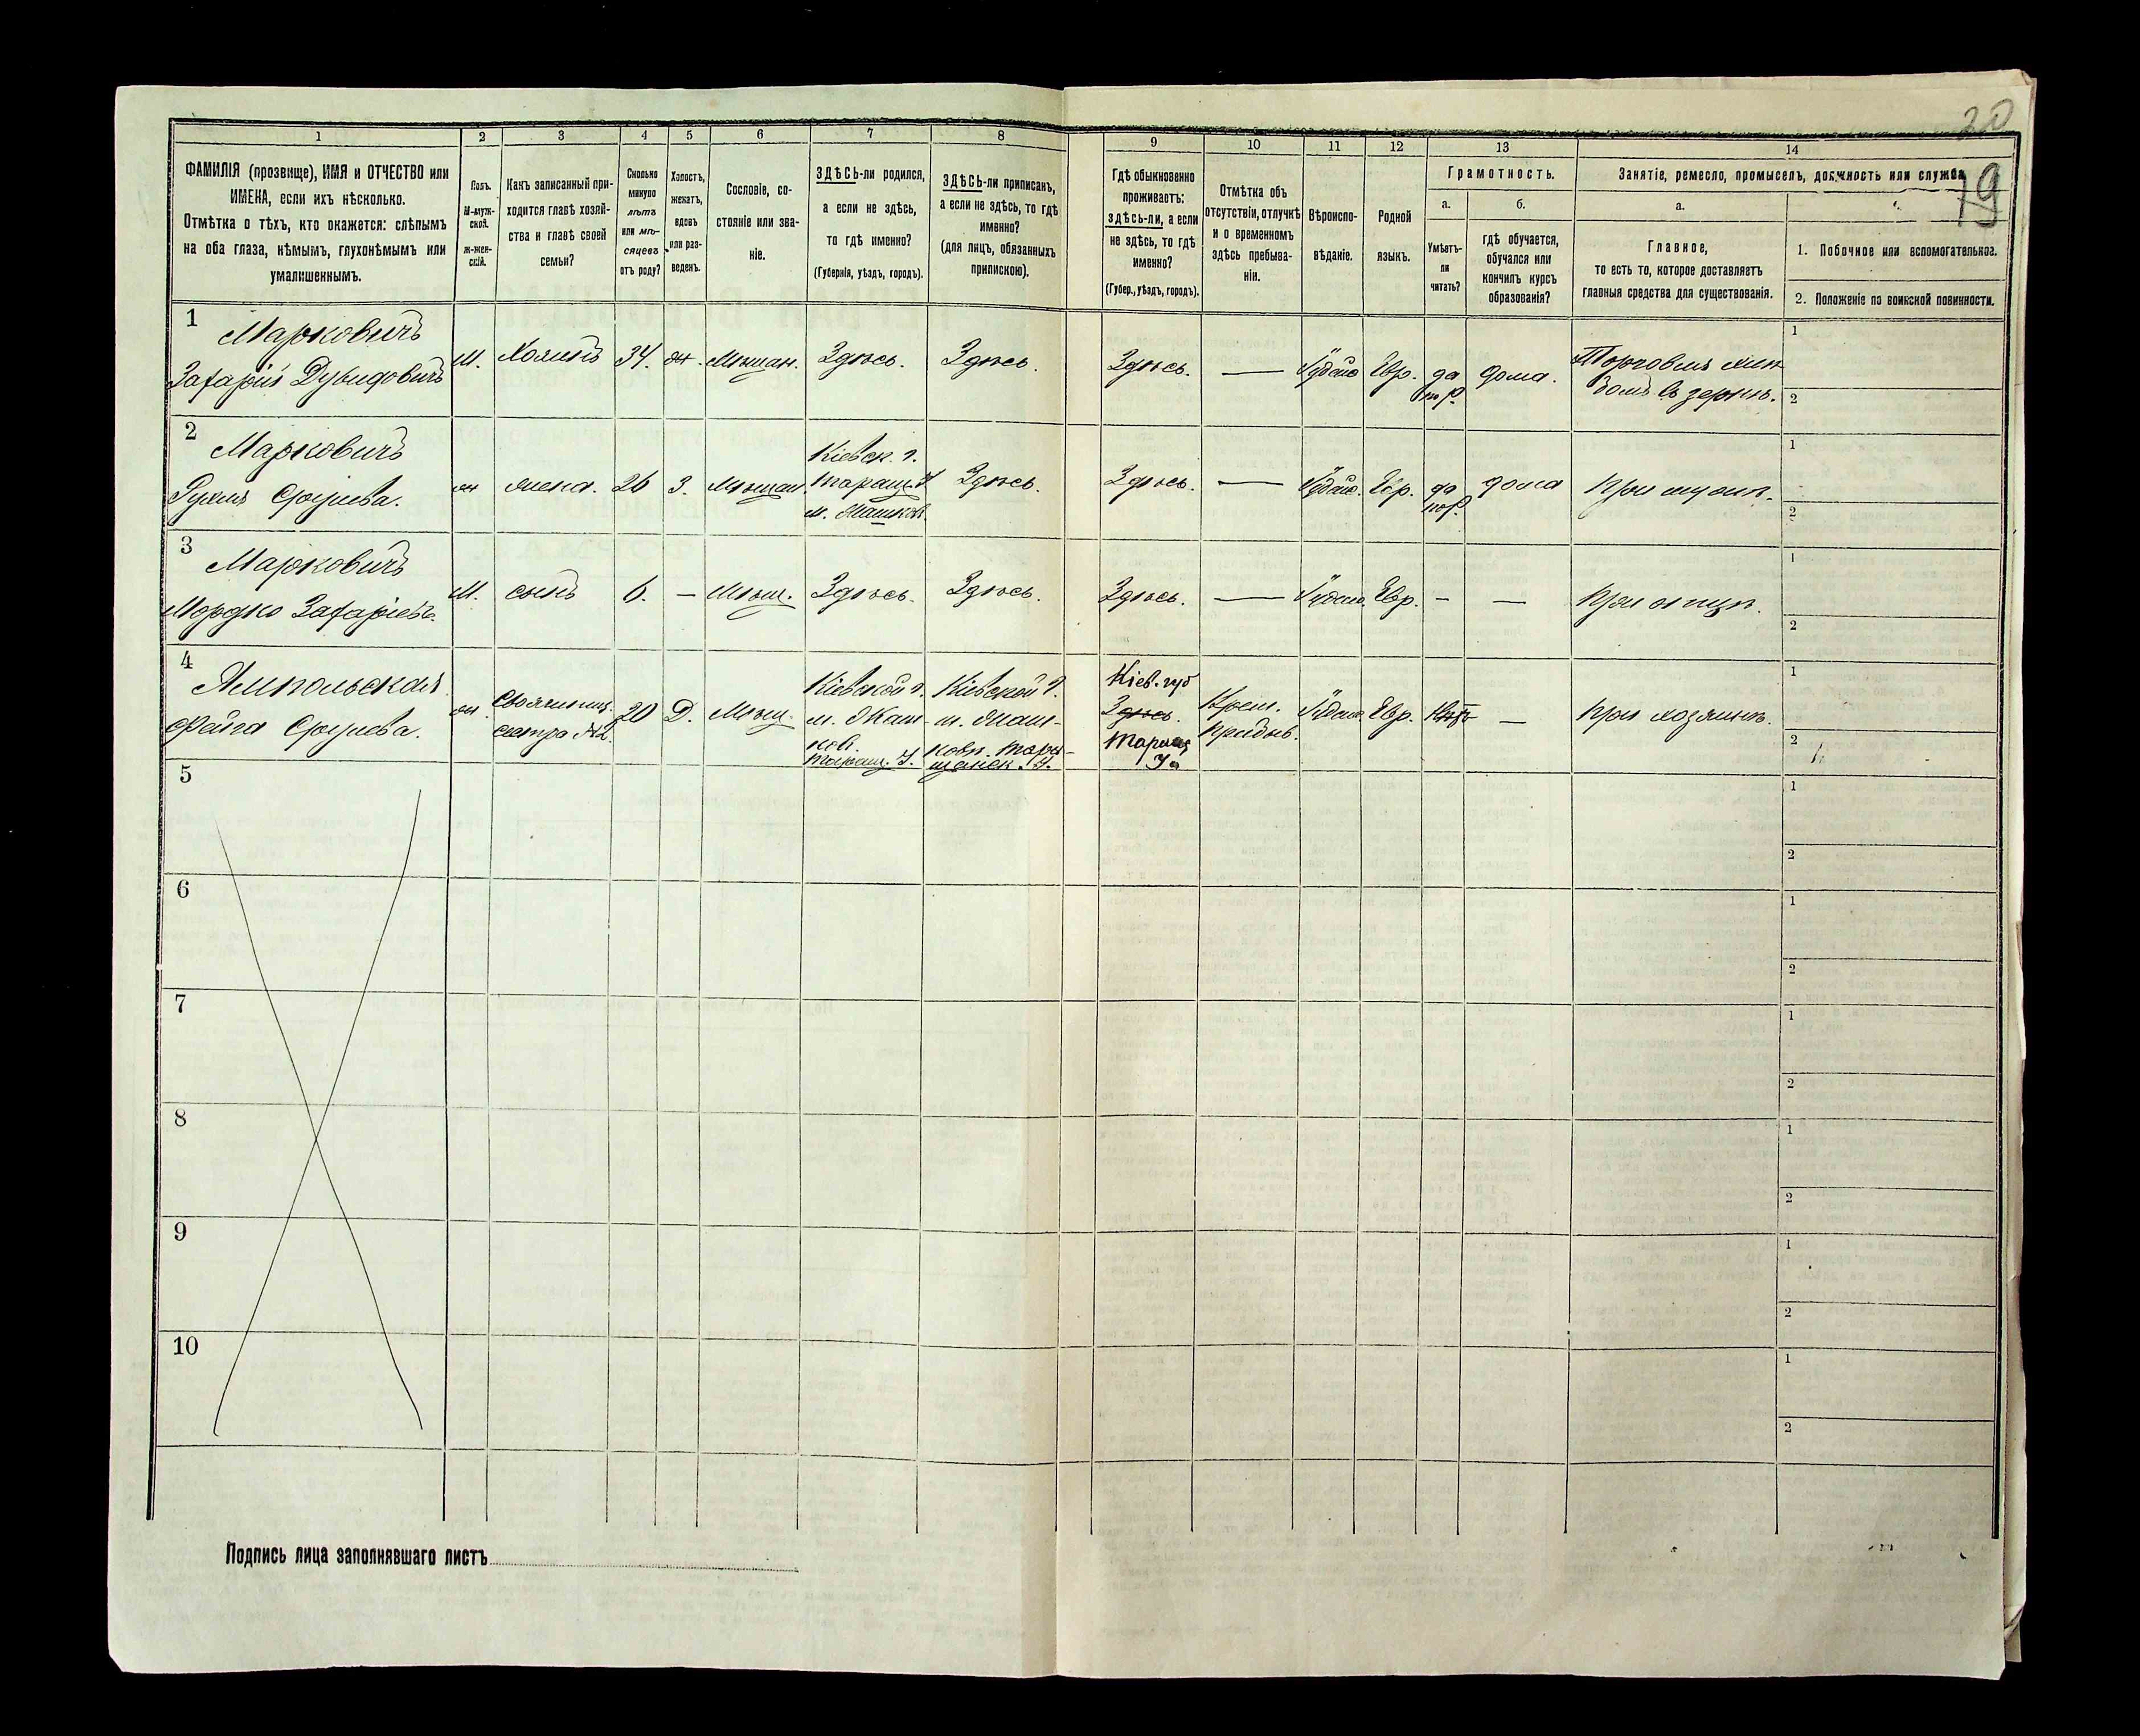 20
19
1
2
3
4
5
6
7
8
9
10
11
12
13
14
ФАМИЛІЯ (прозвище), ИМЯ и ОТЧЕСТВО или
ИМЕНА, если ихъ нѣсколько.
Отмѣтка о тѣхъ, кто окажется: слѣпымъ
на оба глаза, нѣмымъ, глухонѣмымъ или
умалишеннымъ.
Полъ.
М-муж-
ской.
ж-жен-
скій.
Какъ записанный при-
ходится главѣ хозяй-
ства и главѣ своей
семьи?
Сколько
минуло
лѣтъ
или мѣ-
сяцевъ
отъ роду?
Холостъ,
женатъ,
вдовъ
или раз-
веденъ.
Сословіе, со-
стояніе или зва-
ніе.
ЗДѢСЬ-ли родился,
а если не здѣсь,
то гдѣ именно?
(Губернія, уѣздъ, городъ).
ЗДѢСЬ-ли приписанъ,
а если не здѣсь, то гдѣ
именно?
(для лицъ, обязанныхъ
припискою).
Гдѣ обыкновенно
проживаетъ:
здѣсь-ли, а если
не здѣсь, то гдѣ
именно?
(Губер., уѣздъ, городъ).
Отмѣтка объ
отсутствіи, отлучкѣ
и о временномъ
здѣсь пребыва-
ніи.
Вѣроиспо-
вѣданіе.
Родной
языкъ.
Грамотность.
а.
Умѣетъ-
ли
читать?
б.
гдѣ обучается,
обучался или
кончилъ курсъ
образованія?
Занятіе, ремесло, промыселъ, должность или служба
а.
Главное,
то есть то, которое доставляетъ
главныя средства для существованія.
1. Побочное или вспомогательное.
2. Положеніе по воинской повинности.
1
Марковичъ
Захарій Дувидовичъ
М.
Хозяинъ
34.
ж.
Мѣщан.
Здѣсь.
Здѣсь.
Здѣсь.
—
Іудейс
Евр.
да
дома.
Торговля хлѣ-
бомъ въ зернѣ.
1
2
2
Марковичъ
Рухля Сруліева.
ж
жена.
26
З.
Мѣщан.
Кіевск. г.
Таращ. У
м. Жашков
Здѣсь.
Здѣсь.
—
Іудейс.
Евр.
да
дома
При мужѣ.
1
2
3
Марковичъ
Мордко Захаріевъ.
М.
сынъ
6.
—
Мѣщ.
Здѣсь.
Здѣсь.
Здѣсь.
—
Іудейс.
Евр.
—
—
При отцѣ.
1
2
4
Ямпольская
Фейга Сруліева.
ж.
Свояченица.
сестра №2.
20
Д.
Мѣщ.
Кіевской г.
м. Жаш-
ков.
Таращ. У.
Кіевской г.
м. Жаш-
ковъ. Тара-
щанск. У.
Кіев. губ
Здѣсь.
Таращ
У.
Врем.
пребыв.
Іудейс.
Евр.
Нѣтъ
—
При хозяинѣ.
1
2
5
1
2
6
1
2
7
1
2
8
1
2
9
1
2
10
1
2
Подпись лица заполнявшаго листъ